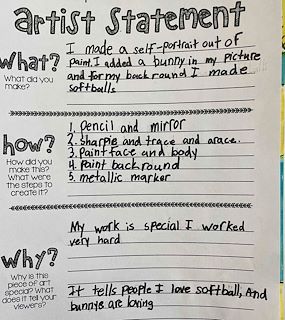 artist Statement
What?
What did you
make?
I made a self-portrait out of
paint. I added a bunny in my picture
and for my back round I made
softballs
how?
How did you
make this?
What were
the steps to
create it?
1. pencil and mirror
2. Sharpie and trace and arace.
3. Paint face and body
4. Paint backround
5. metallic marker
Why?
Why is this
piece of art
special? What
does it tell your
viewers?
My work is special I worked
very hard
It tells people I love softball, And
bunnys are loving